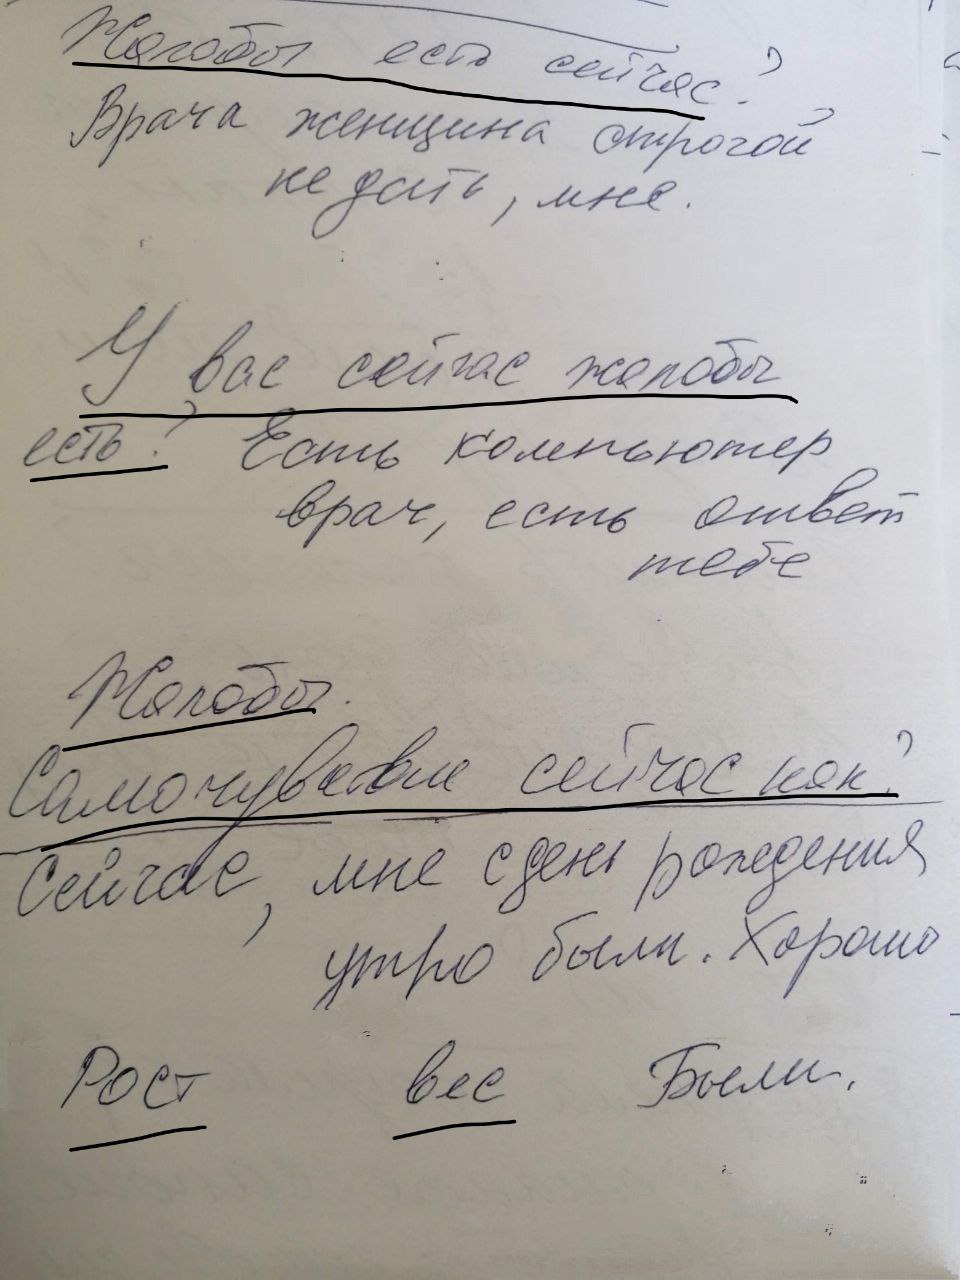 Жалобы есть сейчас?
Врача женщина строгой
не дать, мне.
У вас сейчас жалобы
есть? Есть компьютер
врач, есть ответ
тебе
Жалобы.
Самочувствие сейчас как?
Сейчас, мне с день рождения
утро были. Хорошо
Рост вес Были.